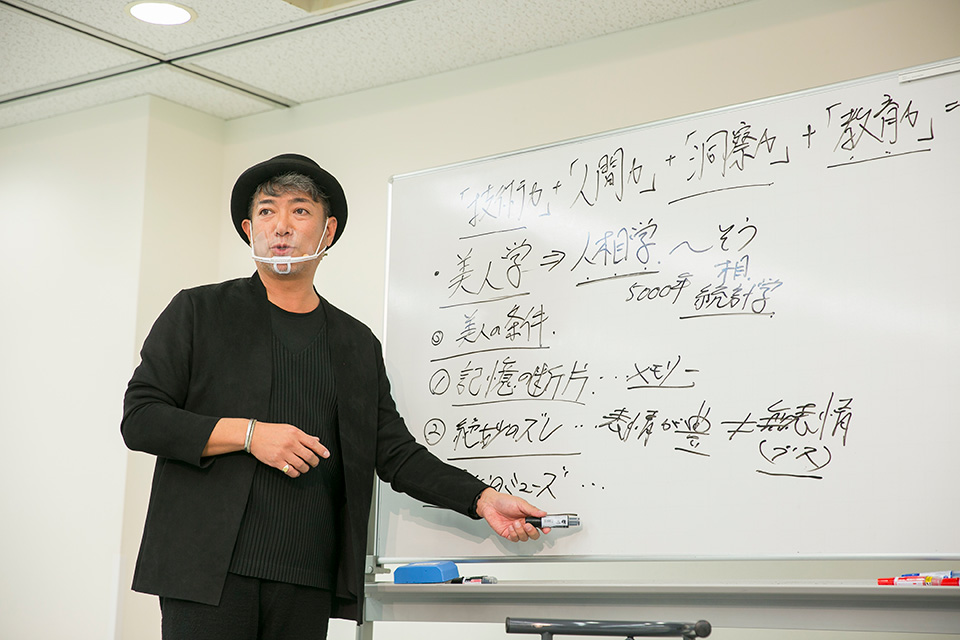 「技術力」+「人間力」+「洞察力」+「教育力」=
・美人学 ⇒ 人相学 〜 そう
相
5000年 統計学
◎ 美人の条件.
① 記憶の断片 … メモリー
② 絶妙のズレ … 表情が豊 ≠ 無表情
(ブス)
ューズ …